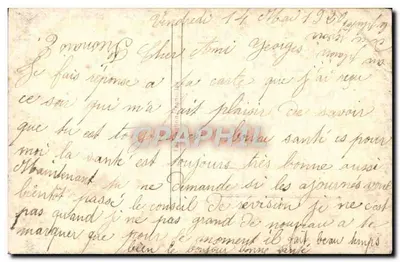 Vendredi 14 Mai 1920
Cher Ami Georges
Je fais réponse a ta carte que j'ai reçu
ce soir qui m'a fait plaisir de savoir
que tu est bonne santé es pour
CPARAMA
moi la santé est toujours très bonne aussi
Maintenant tu me demande si les ajournés vont
bientot passé le conseil de revision je ne est
pas quand j'ne pas grand de nouveau a te
marquer que pour le moment il fait beau temps
bien le bonjour bonne santé